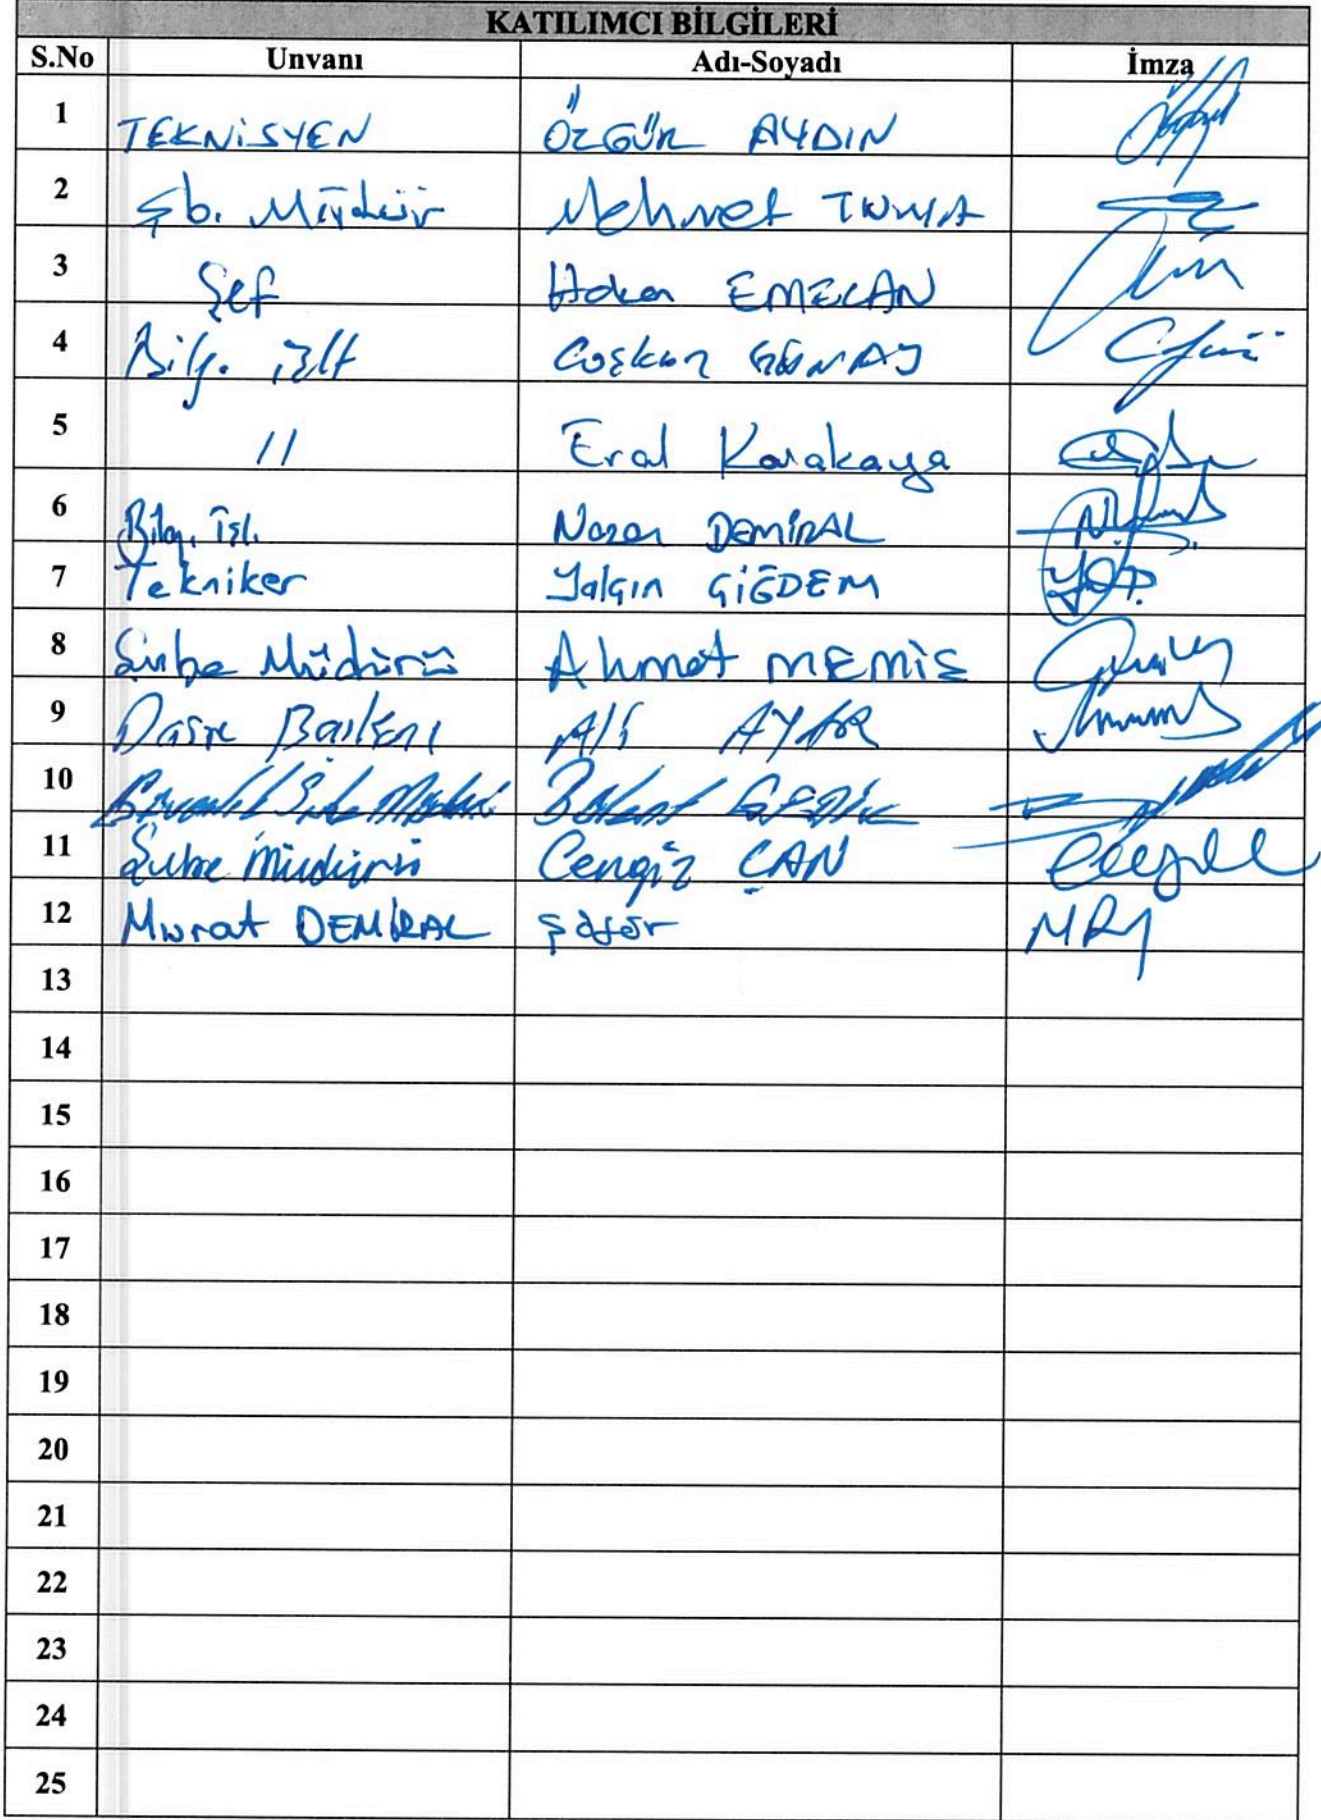 KATILIMCI BİLGİLERİ
S.No Unvanı Adı-Soyadı İmza
1 TEKNİSYEN ÖZGÜR AYDIN
2 Şb. Müdür Mehmet
3 Şef Hakan EMECAN
4 Bilg. İşlt Coşkun GÜNAY
5 11 Eral Karakaya
6 Bilg. İşl. Nazan DEMİRAL
7 Tekniker Yalçın ÇİĞDEM
8 Şube Müdürü Ahmet MEMİŞ
9 Daire Başkanı Ali
10 Bülent GEDİK
11 Şube Müdürü Cengiz CAN
12 Murat DEMİRAL Şoför
13
14
15
16
17
18
19
20
21
22
23
24
25